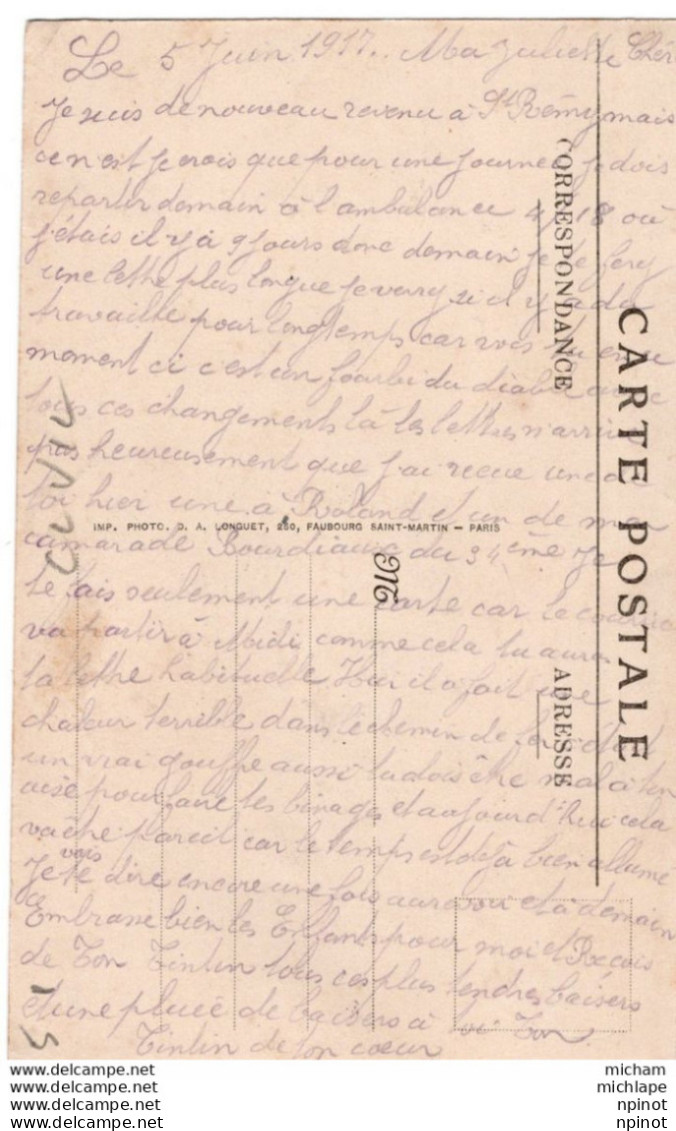 Le 5 Juin 1917. Ma Juliette Chér
Je suis de nouveau revenu à St Rémy mais
ce n'est je crois que pour une journée je dois
repartir demain à l'ambulance 4/18 où
j'étais il y a 9 jours donc demain je te feray
une lettre plus longue je verray si il y a du
travaille pour longtemps car vois tu en ce
moment ci c'est un fourbi du diable avec
tous ces changements là les lettres n'arrive
pas heureusement que j'ai reçue une de
toi hier une à Roland et un de ma
camarade Bourdiaux du 34ème Je
te fais seulement une carte car le courrier
va partir à Midi comme cela tu auras
ta lettre habituelle Hier il a fait une
chaleur terrible dans le chemin de fer c'était
un vrai gouffe aussi tu dois être mal à ton
aise pour faire tes binages et aujourd'hui cela
va être pareil car le temps est déjà bien allumé
Je vais te dire encore une fois au revoir et à demain
Embrasse bien les Enfants pour moi et Reçois
de Ton Tintin tous ces plus tendres baisers
et une pluie de baisers à Ton
Tintin de ton coeur
CARTE POSTALE
CORRESPONDANCE
ADRESSE
M
IMP. PHOTO. D. A. LONGUET, 250, FAUBOURG SAINT-MARTIN — PARIS
https://www.delcampe.net
micham
michlape
npinot
npinot